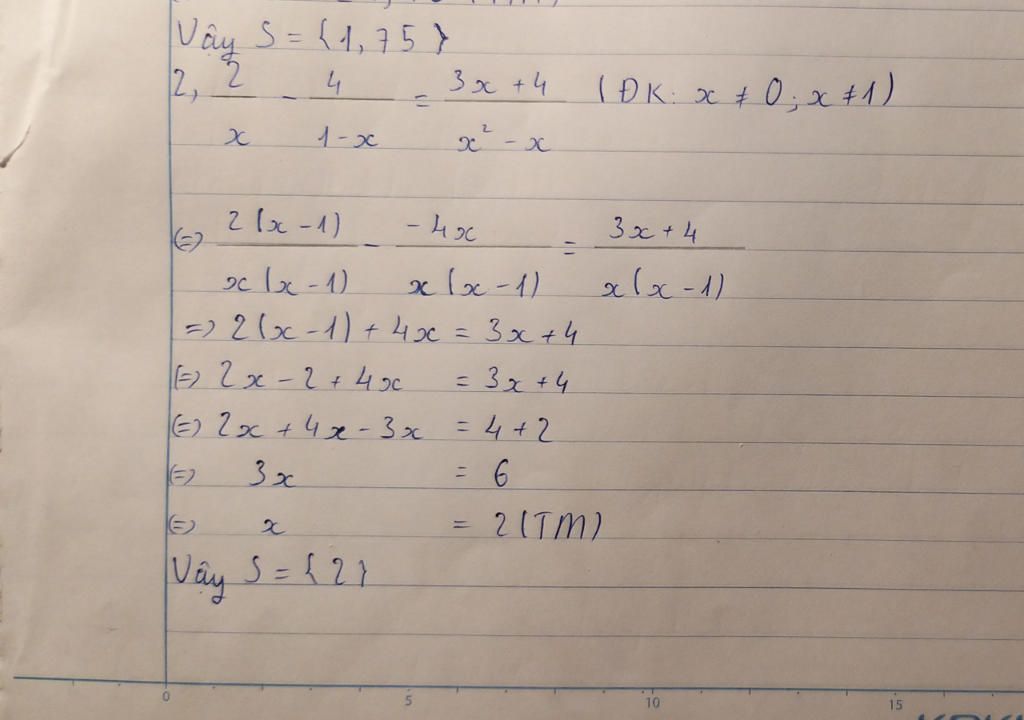 Vậy S = {1,75}
2, 2/x - 4/(1-x) = (3x+4)/(x² - x) (ĐK: x ≠ 0; x ≠ 1)
(=) 2(x-1)/(x(x-1)) - -4x/(x(x-1)) = (3x+4)/(x(x-1))
=> 2(x-1) + 4x = 3x + 4
(=) 2x - 2 + 4x = 3x + 4
(=) 2x + 4x - 3x = 4 + 2
(=) 3x = 6
(=) x = 2 (TM)
Vậy S = {2}
0 5 10 15